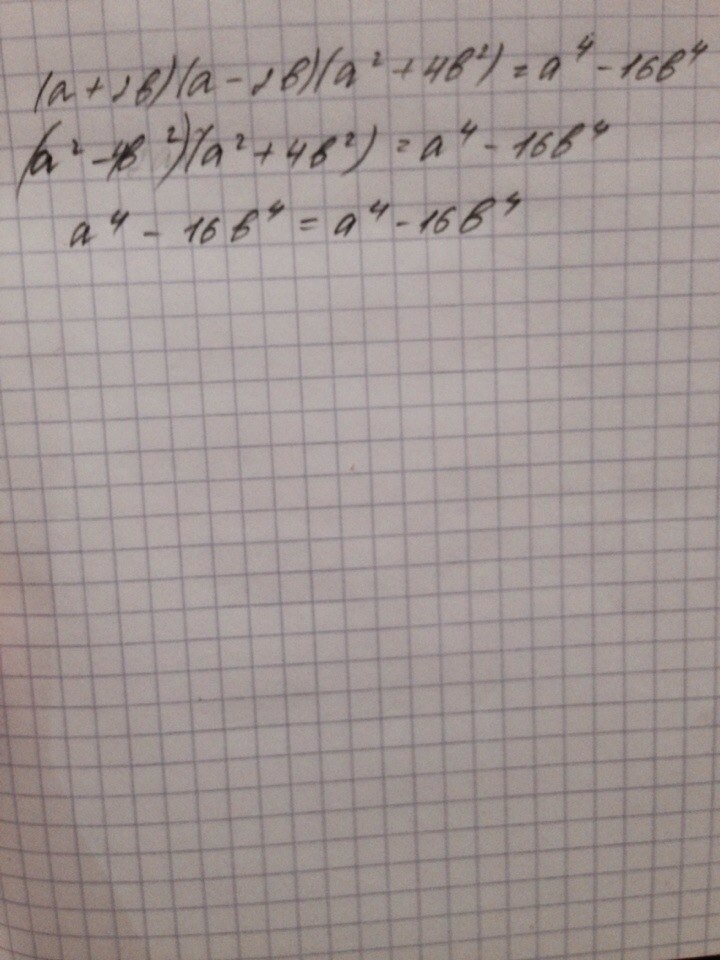 (a + 2b)(a - 2b)(a² + 4b²) = a⁴ - 16b⁴
(a² - 4b²)(a² + 4b²) = a⁴ - 16b⁴
a⁴ - 16b⁴ = a⁴ - 16b⁴